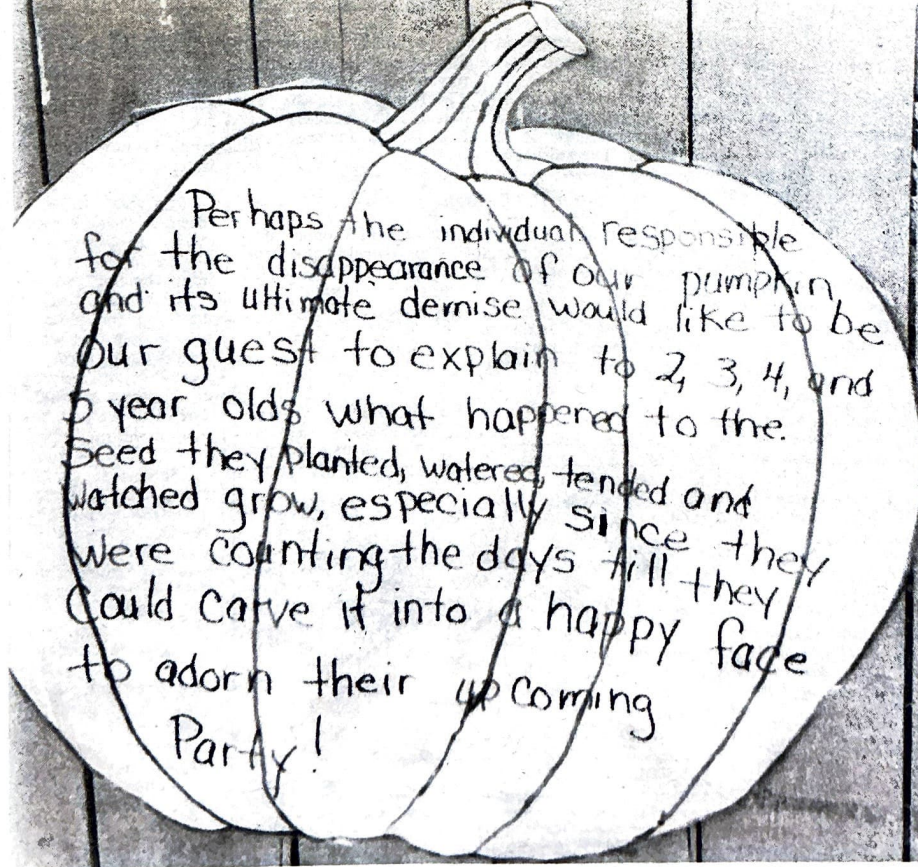 Perhaps the individual responsible
for the disappearance of our pumpkin
and its ultimate demise would like to be
our guest to explain to 2, 3, 4, and
5 year olds what happened to the.
Seed they planted, watered, tended and
watched grow, especially since they
were counting the days till they
Could carve it into a happy face
to adorn their upcoming
Party!